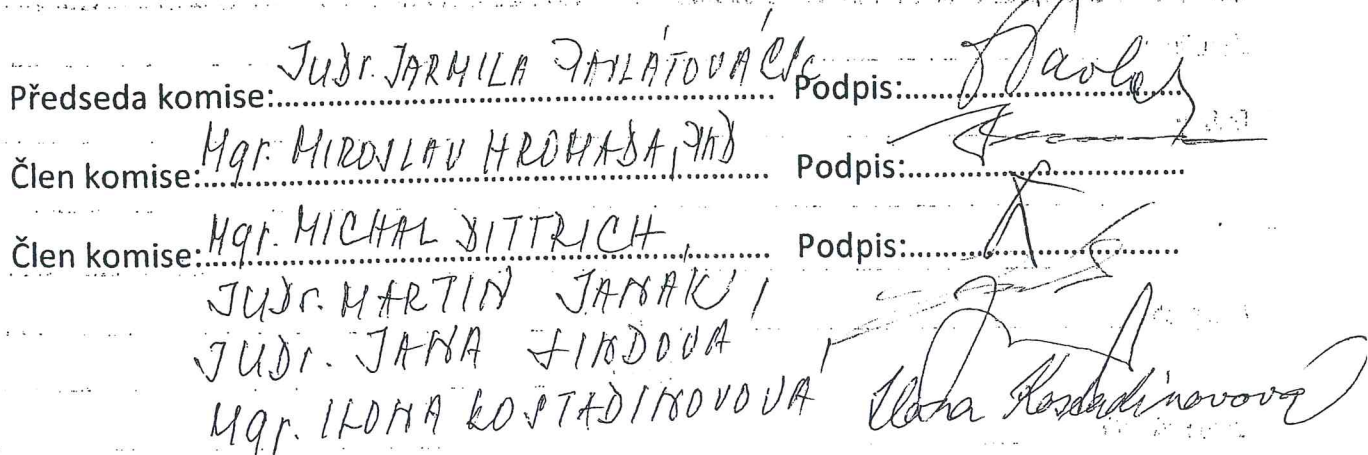 Předseda komise: JUDr. JARMILA PAVLÁTOVÁ CSc Podpis:
Člen komise: Mgr. MIROSLAV HROMADA, PhD Podpis:
Člen komise: Mgr. MICHAL DITTRICH, Podpis:
JUDr. MARTIN JANÁK,
JUDr. JANA
Mgr. ILONA KOSTADINOVOVÁ Ilona Kostadinovová